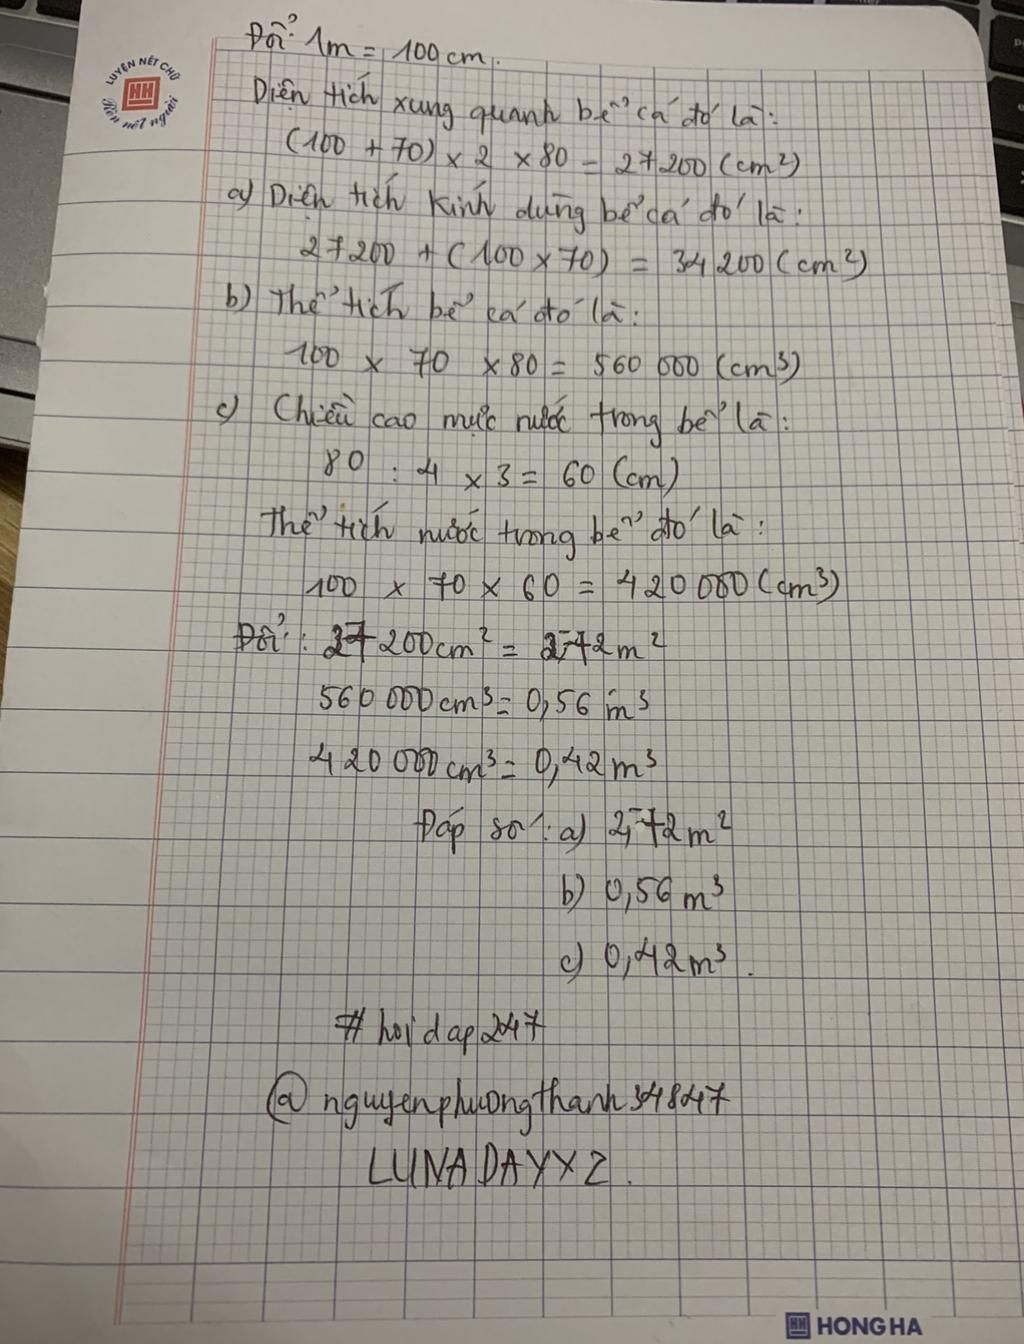 Đổi: 1m = 100cm.
LUYỆN NÉT CHỮ
HH
Rèn nết người
Diện tích xung quanh bể cá đó là:
(100 + 70) x 2 x 80 = 27200 (cm²)
a) Diện tích kính dùng bể cá đó là:
27200 + (100 x 70) = 34200 (cm²)
b) Thể tích bể cá đó là:
100 x 70 x 80 = 560 000 (cm³)
c) Chiều cao mực nước trong bể là:
80 : 4 x 3 = 60 (cm)
Thể tích nước trong bể đó là:
100 x 70 x 60 = 420 000 (cm³)
Đổi: 27 200cm² = 2,72m²
560 000cm³ = 0,56 m³
420 000cm³ = 0,42m³
Đáp số: a) 2,72m²
b) 0,56m³
c) 0,42m³.
# hoidap247
@nguyenphuongthanh34847
LUNADAYYXZ.
HH HONG HA